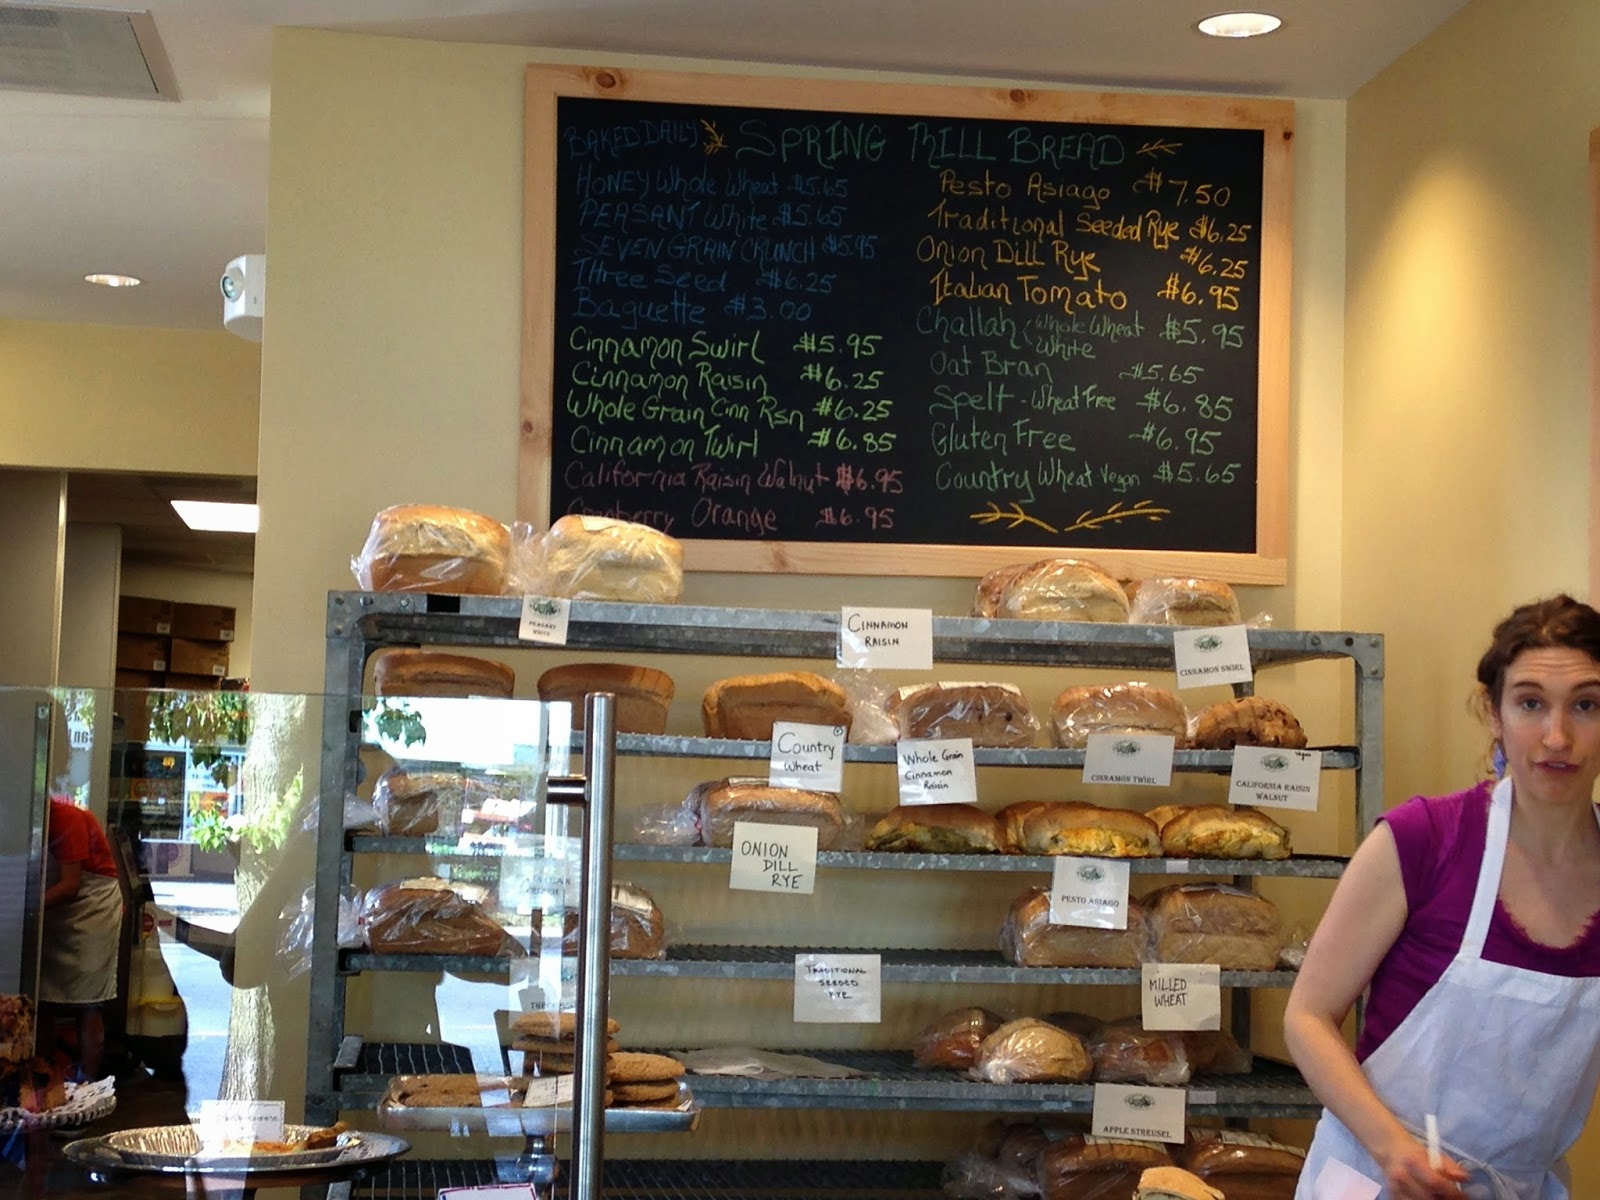 BAKED DAILY SPRING MILL BREAD
HONEY Whole Wheat $5.65
PEASANT White $5.65
SEVEN GRAIN CRUNCH $5.95
Three Seed $6.25
Baguette $3.00
Cinnamon Swirl $5.95
Cinnamon Raisin $6.25
Whole Grain Cinn Rsn $6.25
Cinnamon Twirl $6.85
California Raisin Walnut $6.95
Cranberry Orange $6.95
Pesto Asiago $7.50
Traditional Seeded Rye $6.25
Onion Dill Rye $6.25
Italian Tomato $6.95
Challah Whole Wheat $5.95
White
Oat Bran $5.65
Spelt - Wheat Free $6.85
Gluten Free $6.95
Country Wheat Vegan $5.65
PEASANT
WHITE
CINNAMON
RAISIN
CINNAMON SWIRL
Country
Wheat
Whole Grain
Cinnamon
Raisin
CINNAMON TWIRL
CALIFORNIA RAISIN
WALNUT
ONION
DILL
RYE
PESTO ASIAGO
TRADITIONAL
SEEDED
RYE
MILLED
WHEAT
APPLE STREUSEL